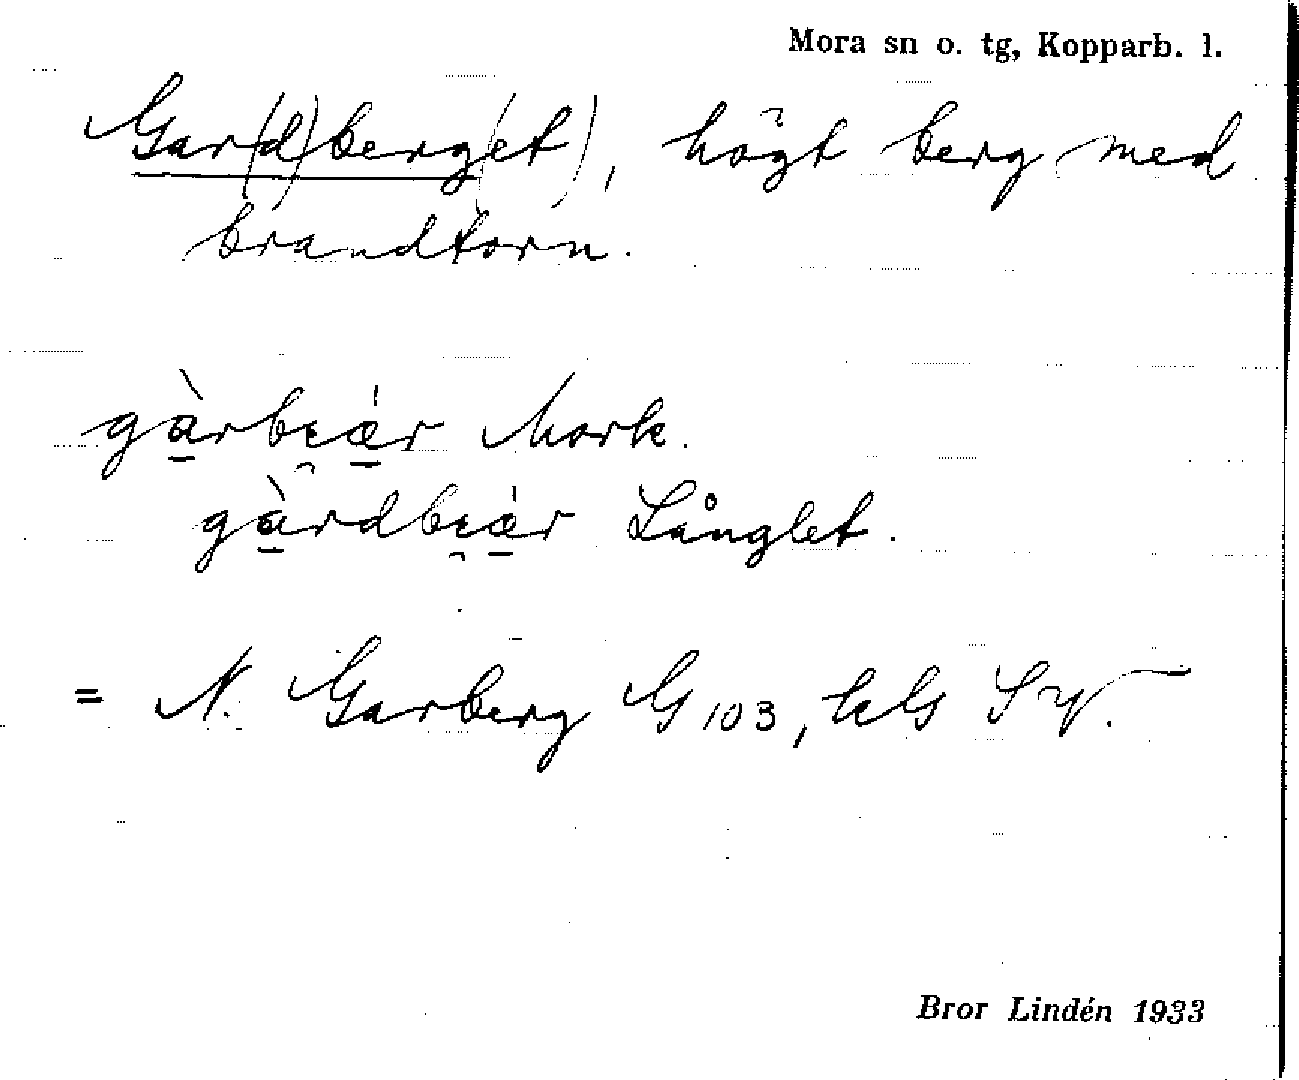 Mora sn o. tg, Kopparb. l.
Gar(d)berg(et), högt berg med
brandtorn.
gàrbɪ̯ær Mork.
gàrdbɪ̯ær Långlet.
= N. Garberg G 103, kls
Bror Lindén 1933